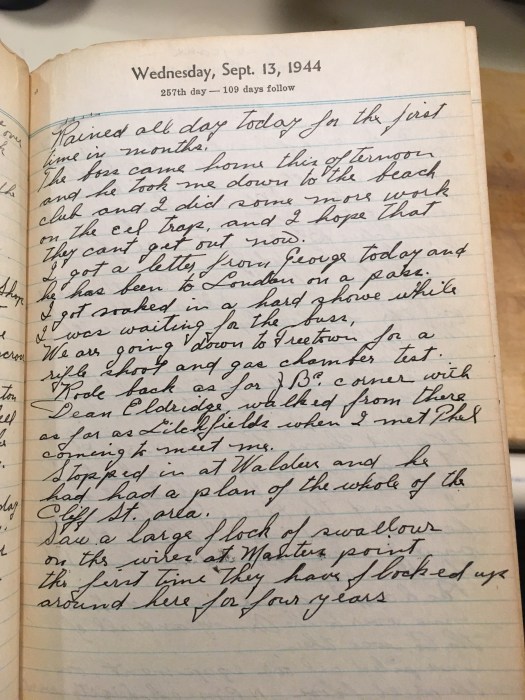 Wednesday, Sept. 13, 1944
257th day — 109 days follow
Rained all day today for the first
time in months.
The boss came home this afternoon
and he took me down to the beach
club and I did some more work
on the eel trap, and I hope that
they cant get out now.
I got a letter from George today and
he has been to London on a pass.
I got soaked in a hard showe while
I was waiting for the buss,
We are going down to Freetown for a
rifle shoot and gas chamber test.
Rode back as far corner with
Dean Eldridge, walked from there
as far as Litchfields when I met Phel
coming to meet me.
Stopped in at Walders and he
had had a plan of the whole of the
Cliff St. area.
Saw a large flock of swallows
on the wires at Manters point
the first time they have flocked up
around here for four years